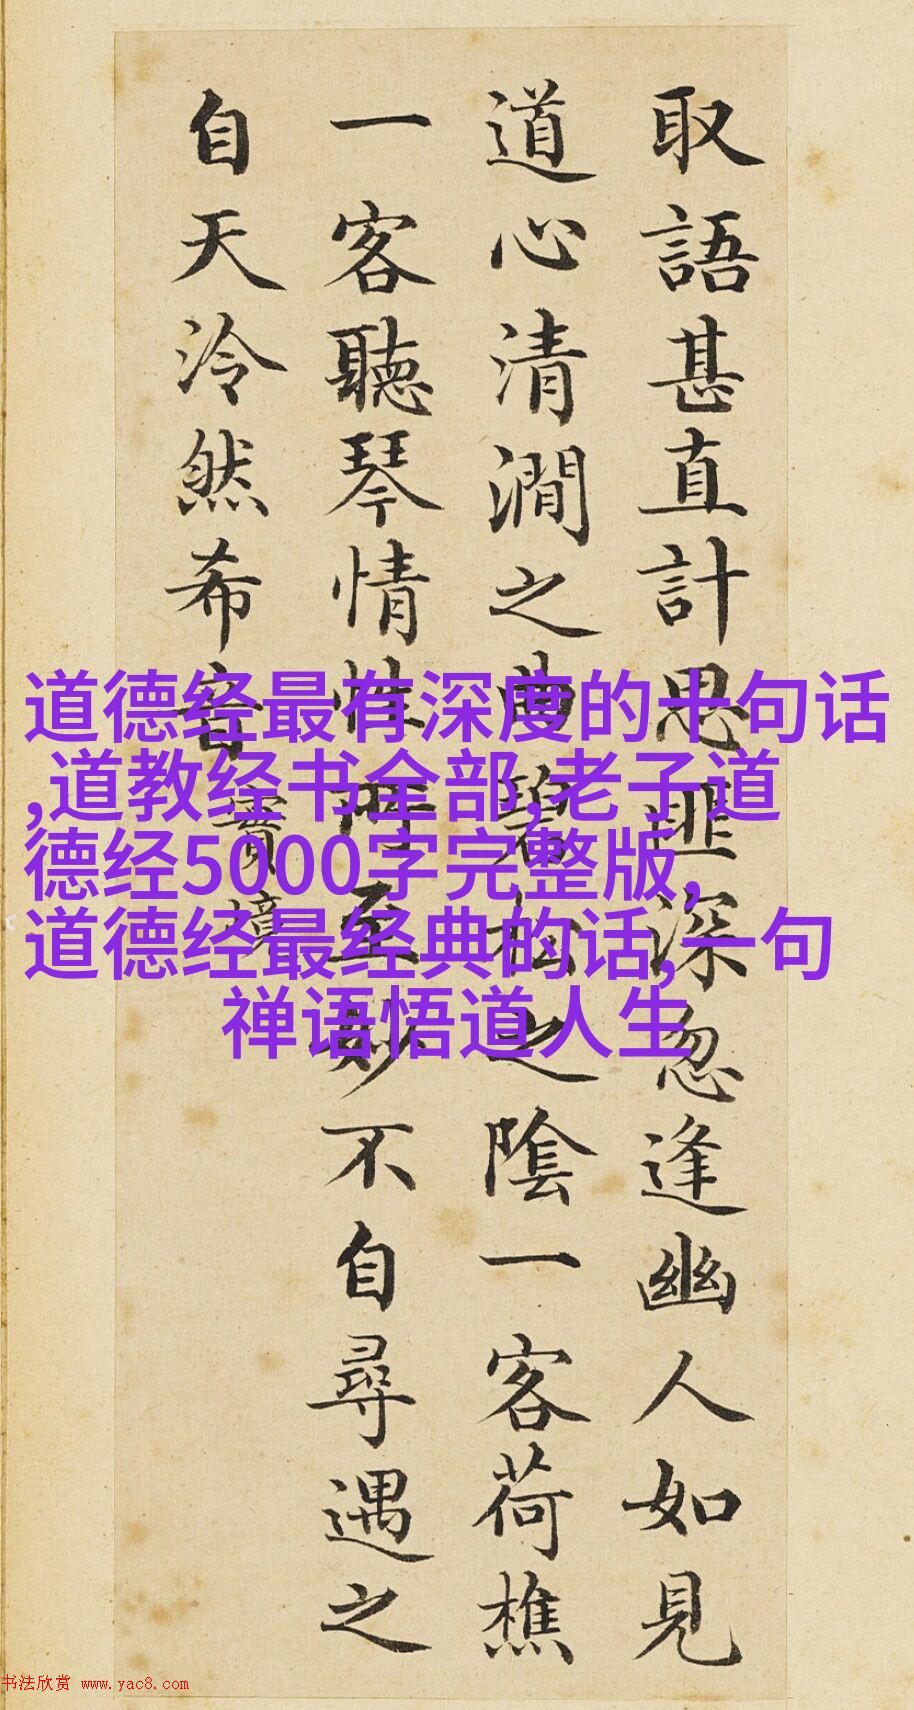 取語甚直計思匪深忽逢幽人如見
道心清澗之曲碧松之陰一客荷樵
一客聽琴情性所至妙不自尋遇之
自天泠然希音
實境
道德经最有深度的十句话
,道教经书全部,老子道
德经5000字完整版,
道德经最经典的话,一句
禅语悟道人生
书法欣赏 www.yac8.com